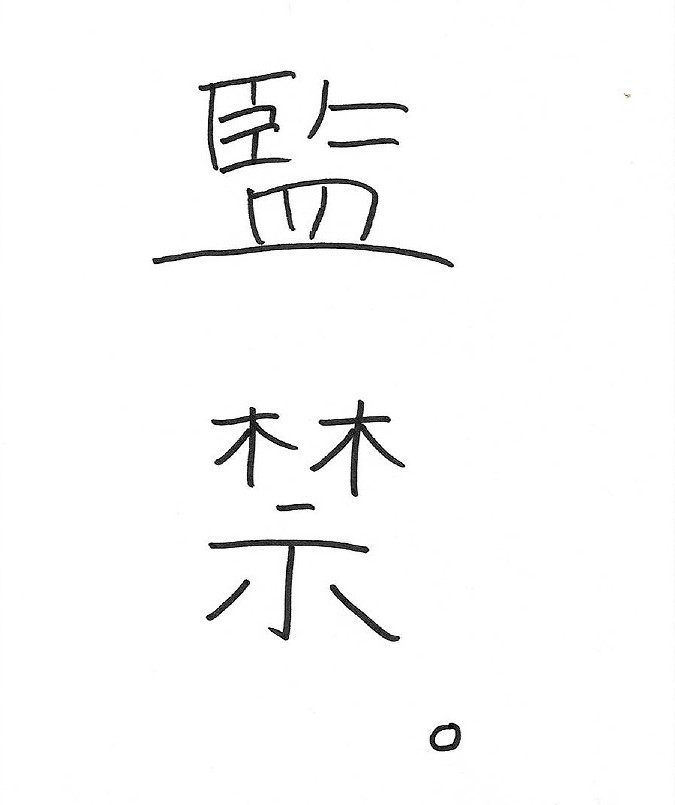 監禁。